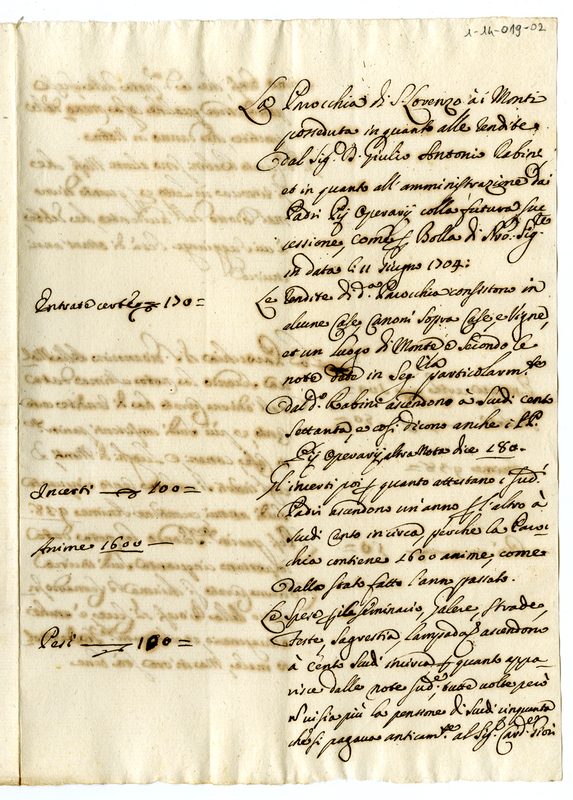 1-14-019-02
La Parochia di S. Lorenzo à i Monti
posseduta in quanto alle rendite,
dal Sig.r D. Giulio Antonio Rabini
et in quanto all'amministrazione dai
Padri Pij Operarij colla futura suc
cessione, come p Bolla di Nro. Sig.re
in data li 11 Giugno 1704:
Entrate certe 170=
Le rendite di d.a Parochia consistono in
alcune Case, Canoni sopra Case, e Vigne,
et un Luogo di Monte e secondo le
note date in Seg.ria particolarm.te
dal d.o Rabini ascendono à Scudi cento
settanta, e così dicono anche i PP.
Pij Operarij altra Nota dice 180.
Incerti 100=
Gl'incerti poi p quanto attestano i sud.i
Padri ascendono un'anno p l'altro à
scudi cento incirca, perche la Paro-
Anime 1600
chia contiene 1600 anime, come
dallo stato fatto l'anno passato.
Le spese p il Seminario, Galere, Strade,
Pesi 100=
Feste, Sagrestia, Lampada ascendono
à cento scudi incirca p quanto appa-
risce dalle note sud.e, tutte volte però
vi sia più la pensione di scudi cinquanta
che si pagava anticam.te al Sig.r Card.